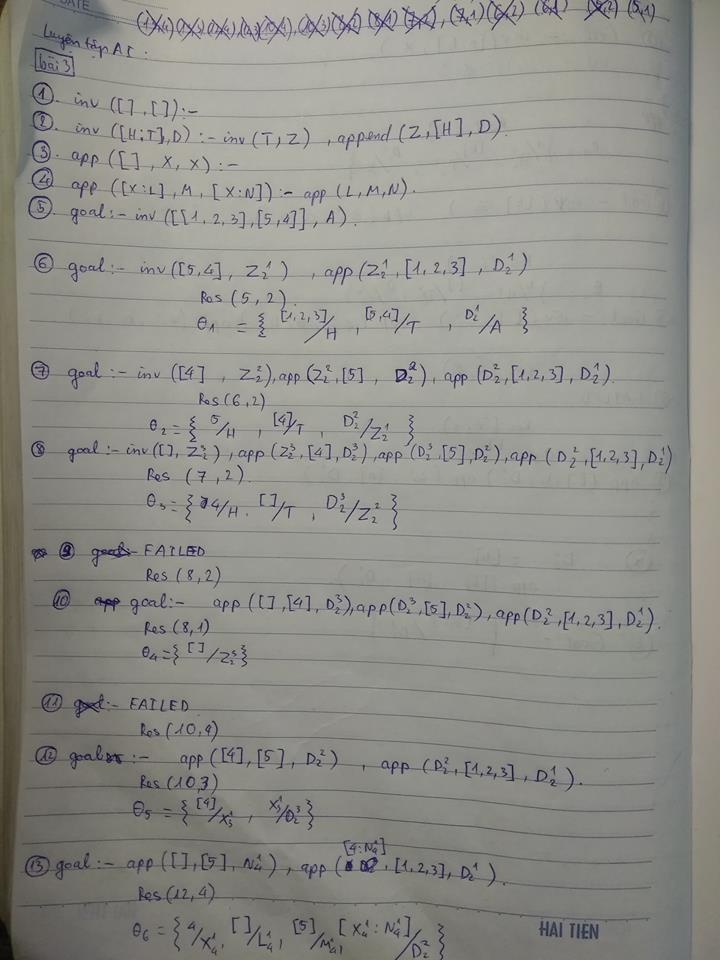 DATE
(1,4) (1,3) (1,4) (1,3) (1,4), (1,3) (8,2) (8,1) (7,1), (7,1) (6,2) (6,1) (5,2) (5,1)
Luyện tập AI :
bài 3
①. inv ([],[]):-
②. inv ([H:T],D) :- inv (T,Z) , append (Z,[H],D).
③. app ([], X, X) :-
④ app ([X:L], M, [X:N]) :- app (L,M,N).
⑤. goal :- inv ([[1,2,3],[5,4]], A).
⑥ goal :- inv ([5,4], Z₂¹) , app (Z₂¹, [1,2,3], D₂¹)
Res (5,2).
θ₁ = { [1,2,3]/H , [5,4]/T , D₂¹/A }
⑦ goal :- inv ([4], Z₂²), app (Z₂², [5], D₂²), app (D₂², [1,2,3], D₂¹).
Res (6,2)
θ₂ = { 5/H , [4]/T , D₂²/Z₂¹ }
⑧ goal :- inv ([], Z₂³), app (Z₂³, [4], D₂³), app (D₂³, [5], D₂²), app (D₂², [1,2,3], D₂¹)
Res (7,2).
θ₃ = { 4/H . []/T , D₂³/Z₂² }
⑨ goal :- FAILED
Res (8,2)
⑩ app goal :- app ([], [4], D₂³), app (D₂³, [5], D₂²), app (D₂², [1,2,3], D₂¹).
Res (8,1)
θ₄ = { []/Z₂³ }
⑪ goal :- FAILED
Res (10,4)
⑫ goal :- app ([4], [5], D₂²) , app (D₂², [1,2,3], D₂¹).
Res (10,3)
θ₅ = { [4]/X₃¹ , X₃¹/D₂³ }
[4:N₄¹]
⑬ goal :- app ([], [5], N₄¹), app ( , [1,2,3], D₂¹).
Res (12,4)
θ₆ = { 4/X₄¹, []/L₄¹, [5]/M₄¹, [X₄¹ : N₄¹]/D₂² }
HAI TIEN